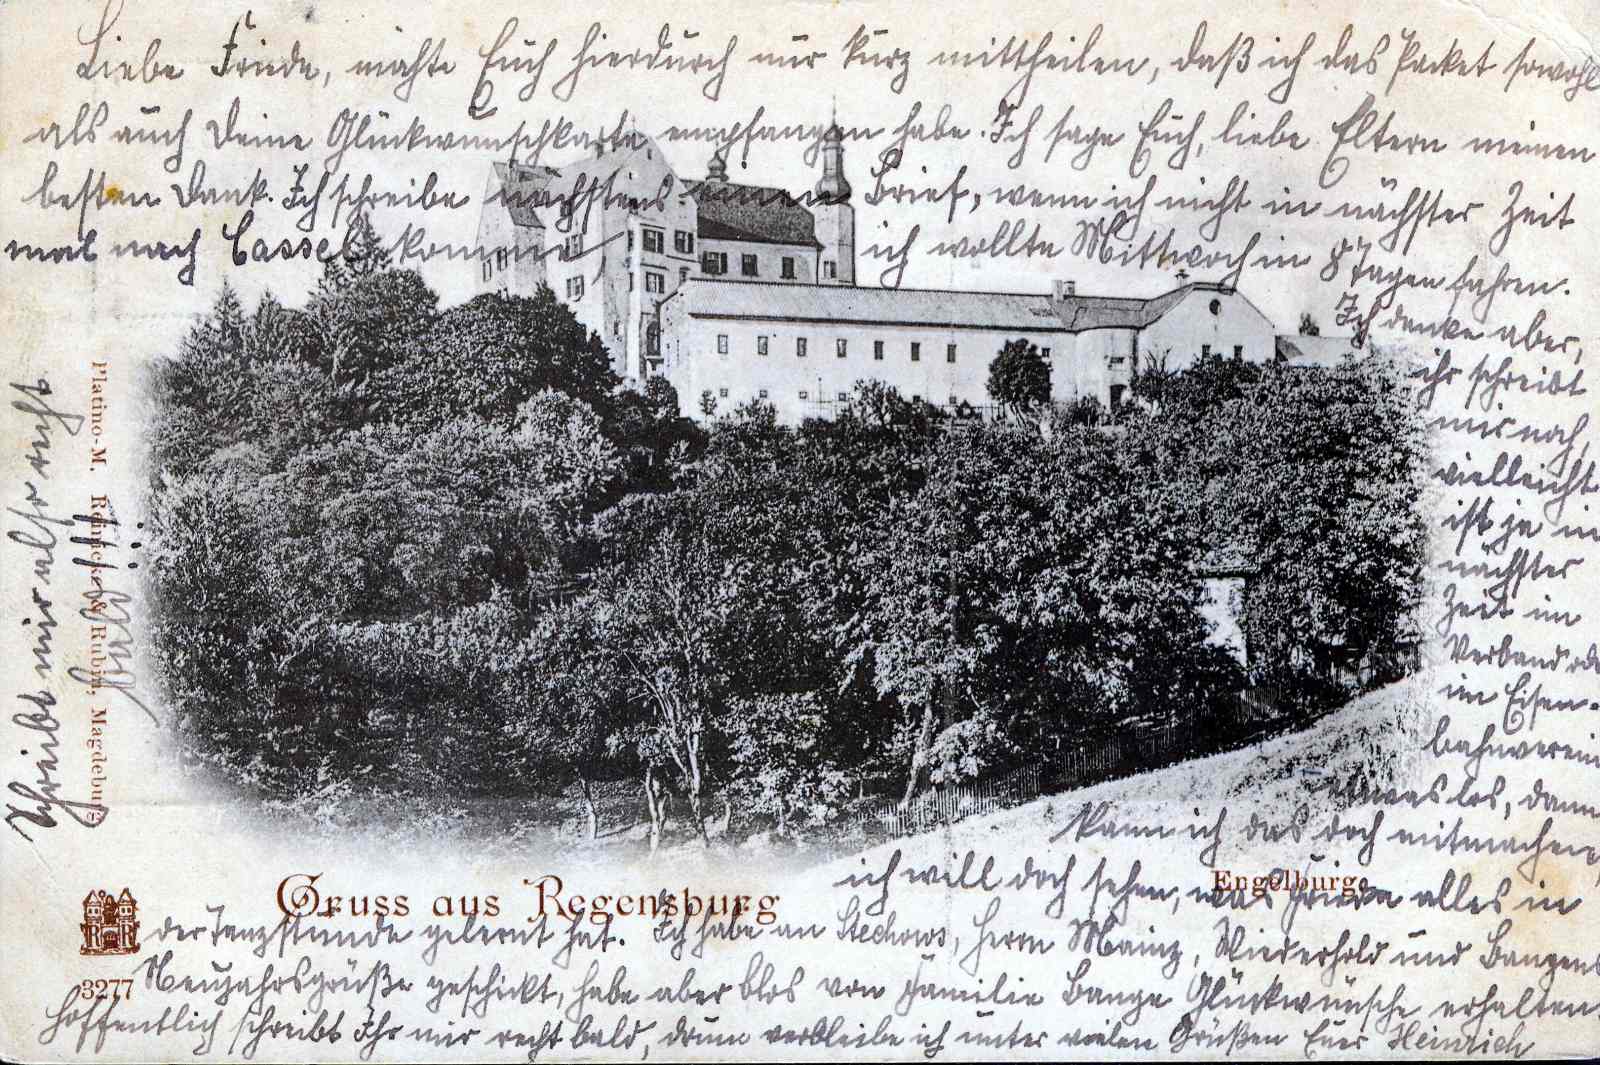 Liebe Friede, möchte Euch hierdurch nur kurz mittheilen, daß ich das Packet sowohl
als auch Deine Glückwunschkarte empfangen habe. Ich sage Euch, liebe Eltern meinen
besten Dank. Ich schreibe nächstens einen Brief, wenn ich nicht in nächster Zeit
mal nach Cassel komme, ich wollte Mittwoch in 8 Tagen fahren.
Ich denke aber,
ihr schreibt
mir noch,
vielleicht
ist ja in
nächster
Zeit im
Verband oder
im Eisen-
bahnverein
etwas los, dann
kann ich das doch mitmachen,
ich will doch sehen, was Frieda alles in
der Tanzstunde gelernt hat. Ich habe an Stechows, Herrn Mainz, Wiederhold und Bangens
Neujahrsgrüße geschickt, habe aber blos von Familie Bange Glückwünsche erhalten.
Hoffentlich schreibt Ihr mir recht bald, drum verbleibe ich unter vielen Grüßen Euer Heinrich
Schreibt mir also recht
bald!!!
Platino-M. Reinicke & Rubin, Magdeburg
Gruss aus Regensburg
Engelburg.
R R
3277